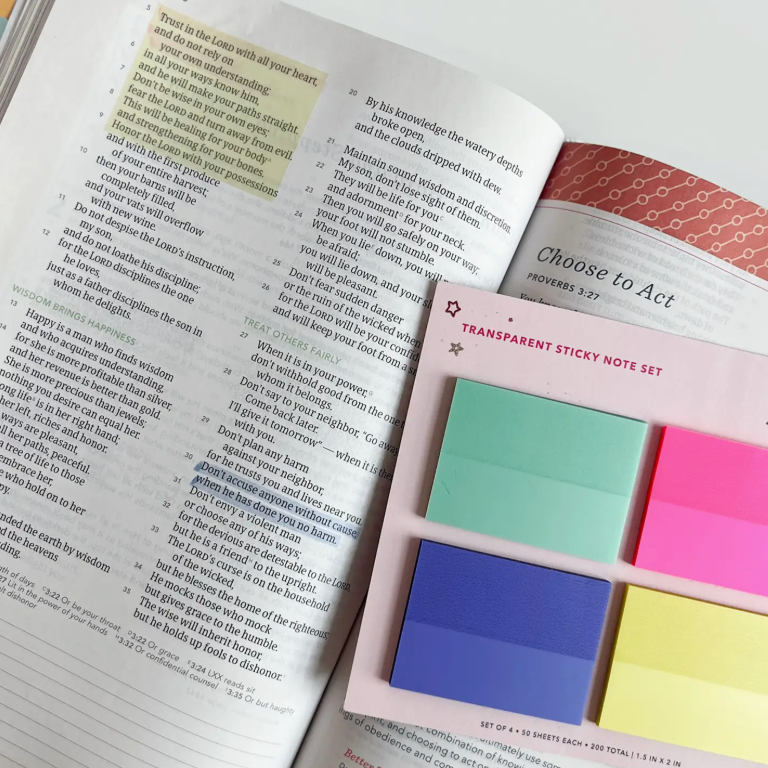 5 Trust in the LORD with all your heart,
and do not rely on
your own understanding;
6 in all your ways know him,
and he will make your paths straight.
7 Don't be wise in your own eyes;
fear the LORD and turn away from evil.
8 This will be healing for your body
and strengthening for your bones.
9 Honor the LORD with your possessions
and with the first produce
of your entire harvest;
10 then your barns will be
completely filled,
and your vats will overflow
with new wine.
11 Do not despise the LORD's instruction,
my son,
and do not loathe his discipline;
12 for the LORD disciplines the one
he loves,
just as a father disciplines the son in
whom he delights.
WISDOM BRINGS HAPPINESS
13 Happy is a man who finds wisdom
and who acquires understanding,
14 for she is more profitable than silver,
and her revenue is better than gold.
She is more precious than jewels;
nothing you desire can equal her.
long life is in her right hand;
her left, riches and honor.
ways are pleasant,
her paths, peaceful.
a tree of life to those
embrace her,
who hold on to her
founded the earth by wisdom
the heavens
20 By his knowledge the watery depths
broke open,
and the clouds dripped with dew.
21 Maintain sound wisdom and discretion.
My son, don't lose sight of them.
22 They will be life for you
and adornment for your neck.
23 Then you will go safely on your way;
your foot will not stumble.
24 When you lie down, you will
be afraid;
you will lie down, and your
will be pleasant.
25 Don't fear sudden danger
or the ruin of the wicked when
26 for the LORD will be your
and will keep your foot from a
TREAT OTHERS FAIRLY
27 When it is in your power,
don't withhold good from the one
whom it belongs.
28 Don't say to your neighbor, "Go away
Come back later.
I'll give it tomorrow" — when it is
with you.
29 Don't plan any harm
against your neighbor,
for he trusts you and lives near you.
30 Don't accuse anyone without cause,
when he has done you no harm.
31 Don't envy a violent man
or choose any of his ways;
32 for the devious are detestable to the LORD,
but he is a friend to the upright.
33 The LORD's curse is on the household
of the wicked,
but he blesses the home of the righteous;
34 He mocks those who mock
but gives grace to the humble.
35 The wise will inherit honor,
but he holds up fools to dishonor.
of days
Lit in the power of your hands
dishonor
3:22 Or be your throat
3:22 Or grace
3:24 LXX reads sit
3:32 Or confidential counsel
3:35 Or but haughty
Choose to Act
PROVERBS 3:27
TRANSPARENT STICKY NOTE SET
SET OF 4 • 50 SHEETS EACH • 200 TOTAL | 1.5 IN X 2 IN
of obedience and